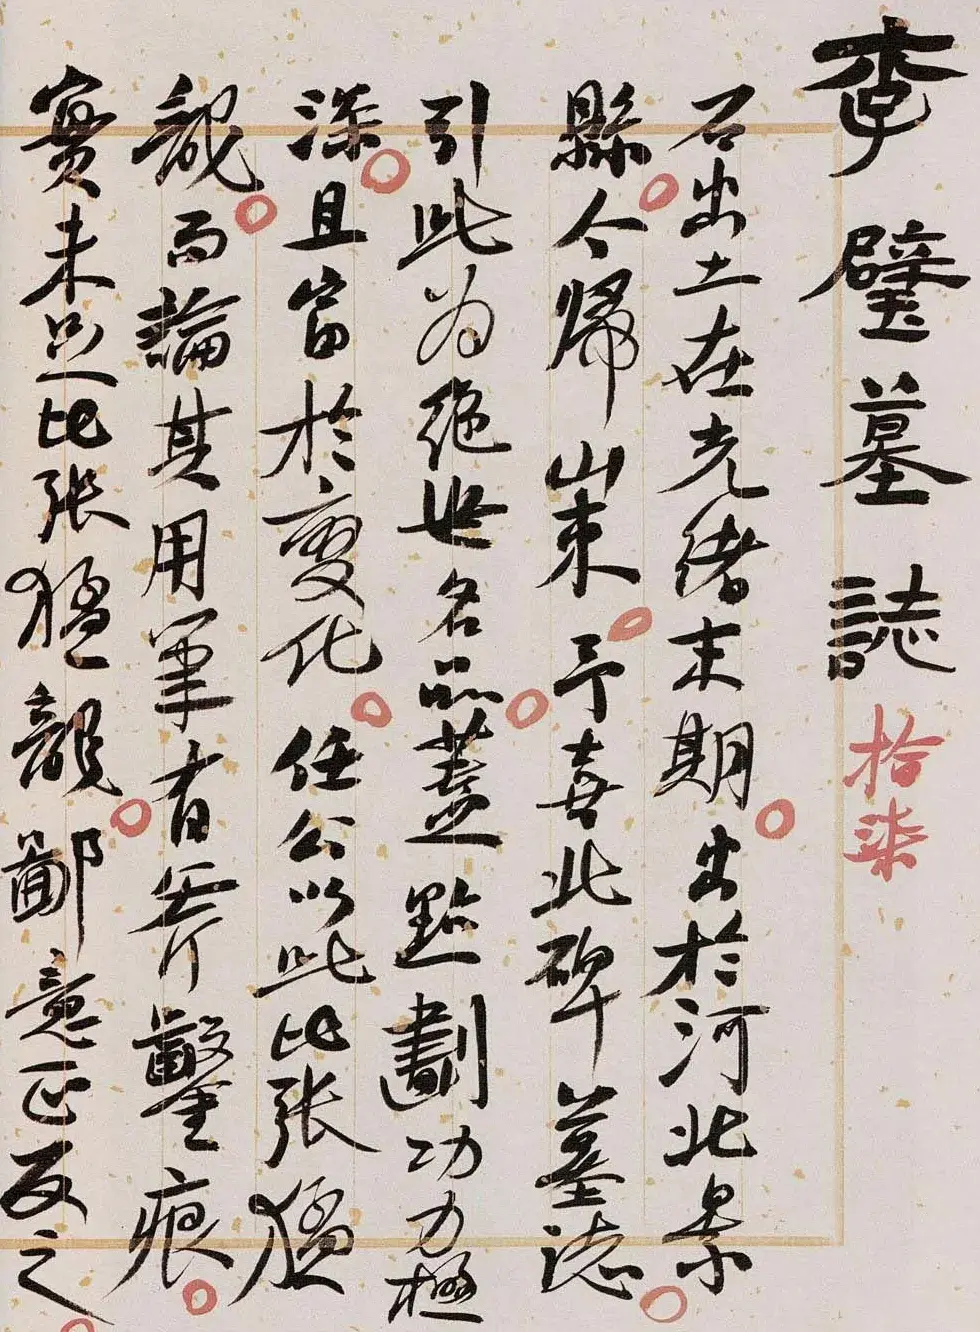 李璧墓誌
拾柒
石出土在光緒末期出於河北景
縣今歸山東予喜此碑墓誌
引此为絕世名品蓋點劃功力極
深且富於變化任公以此比張猛
龍而論其用筆有斧鑿痕
實未足比張猛龍鄙意正反之